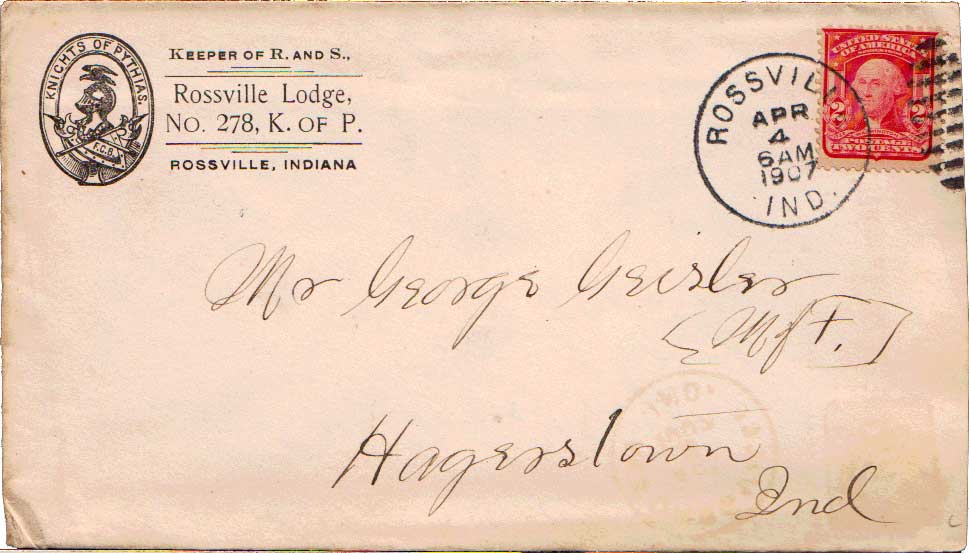 KNIGHTS OF PYTHIAS.
F.C.B.
KEEPER OF R. AND S.,
Rossville Lodge,
No. 278, K. OF P.
ROSSVILLE, INDIANA
ROSSVILL
APR
4
6 AM
1907
IND.
UNITED STATES
OF AMERICA
2 2
POSTAGE
TWO CENTS
Mr George Geisler
[Mgr.]
Hagerstown
Ind